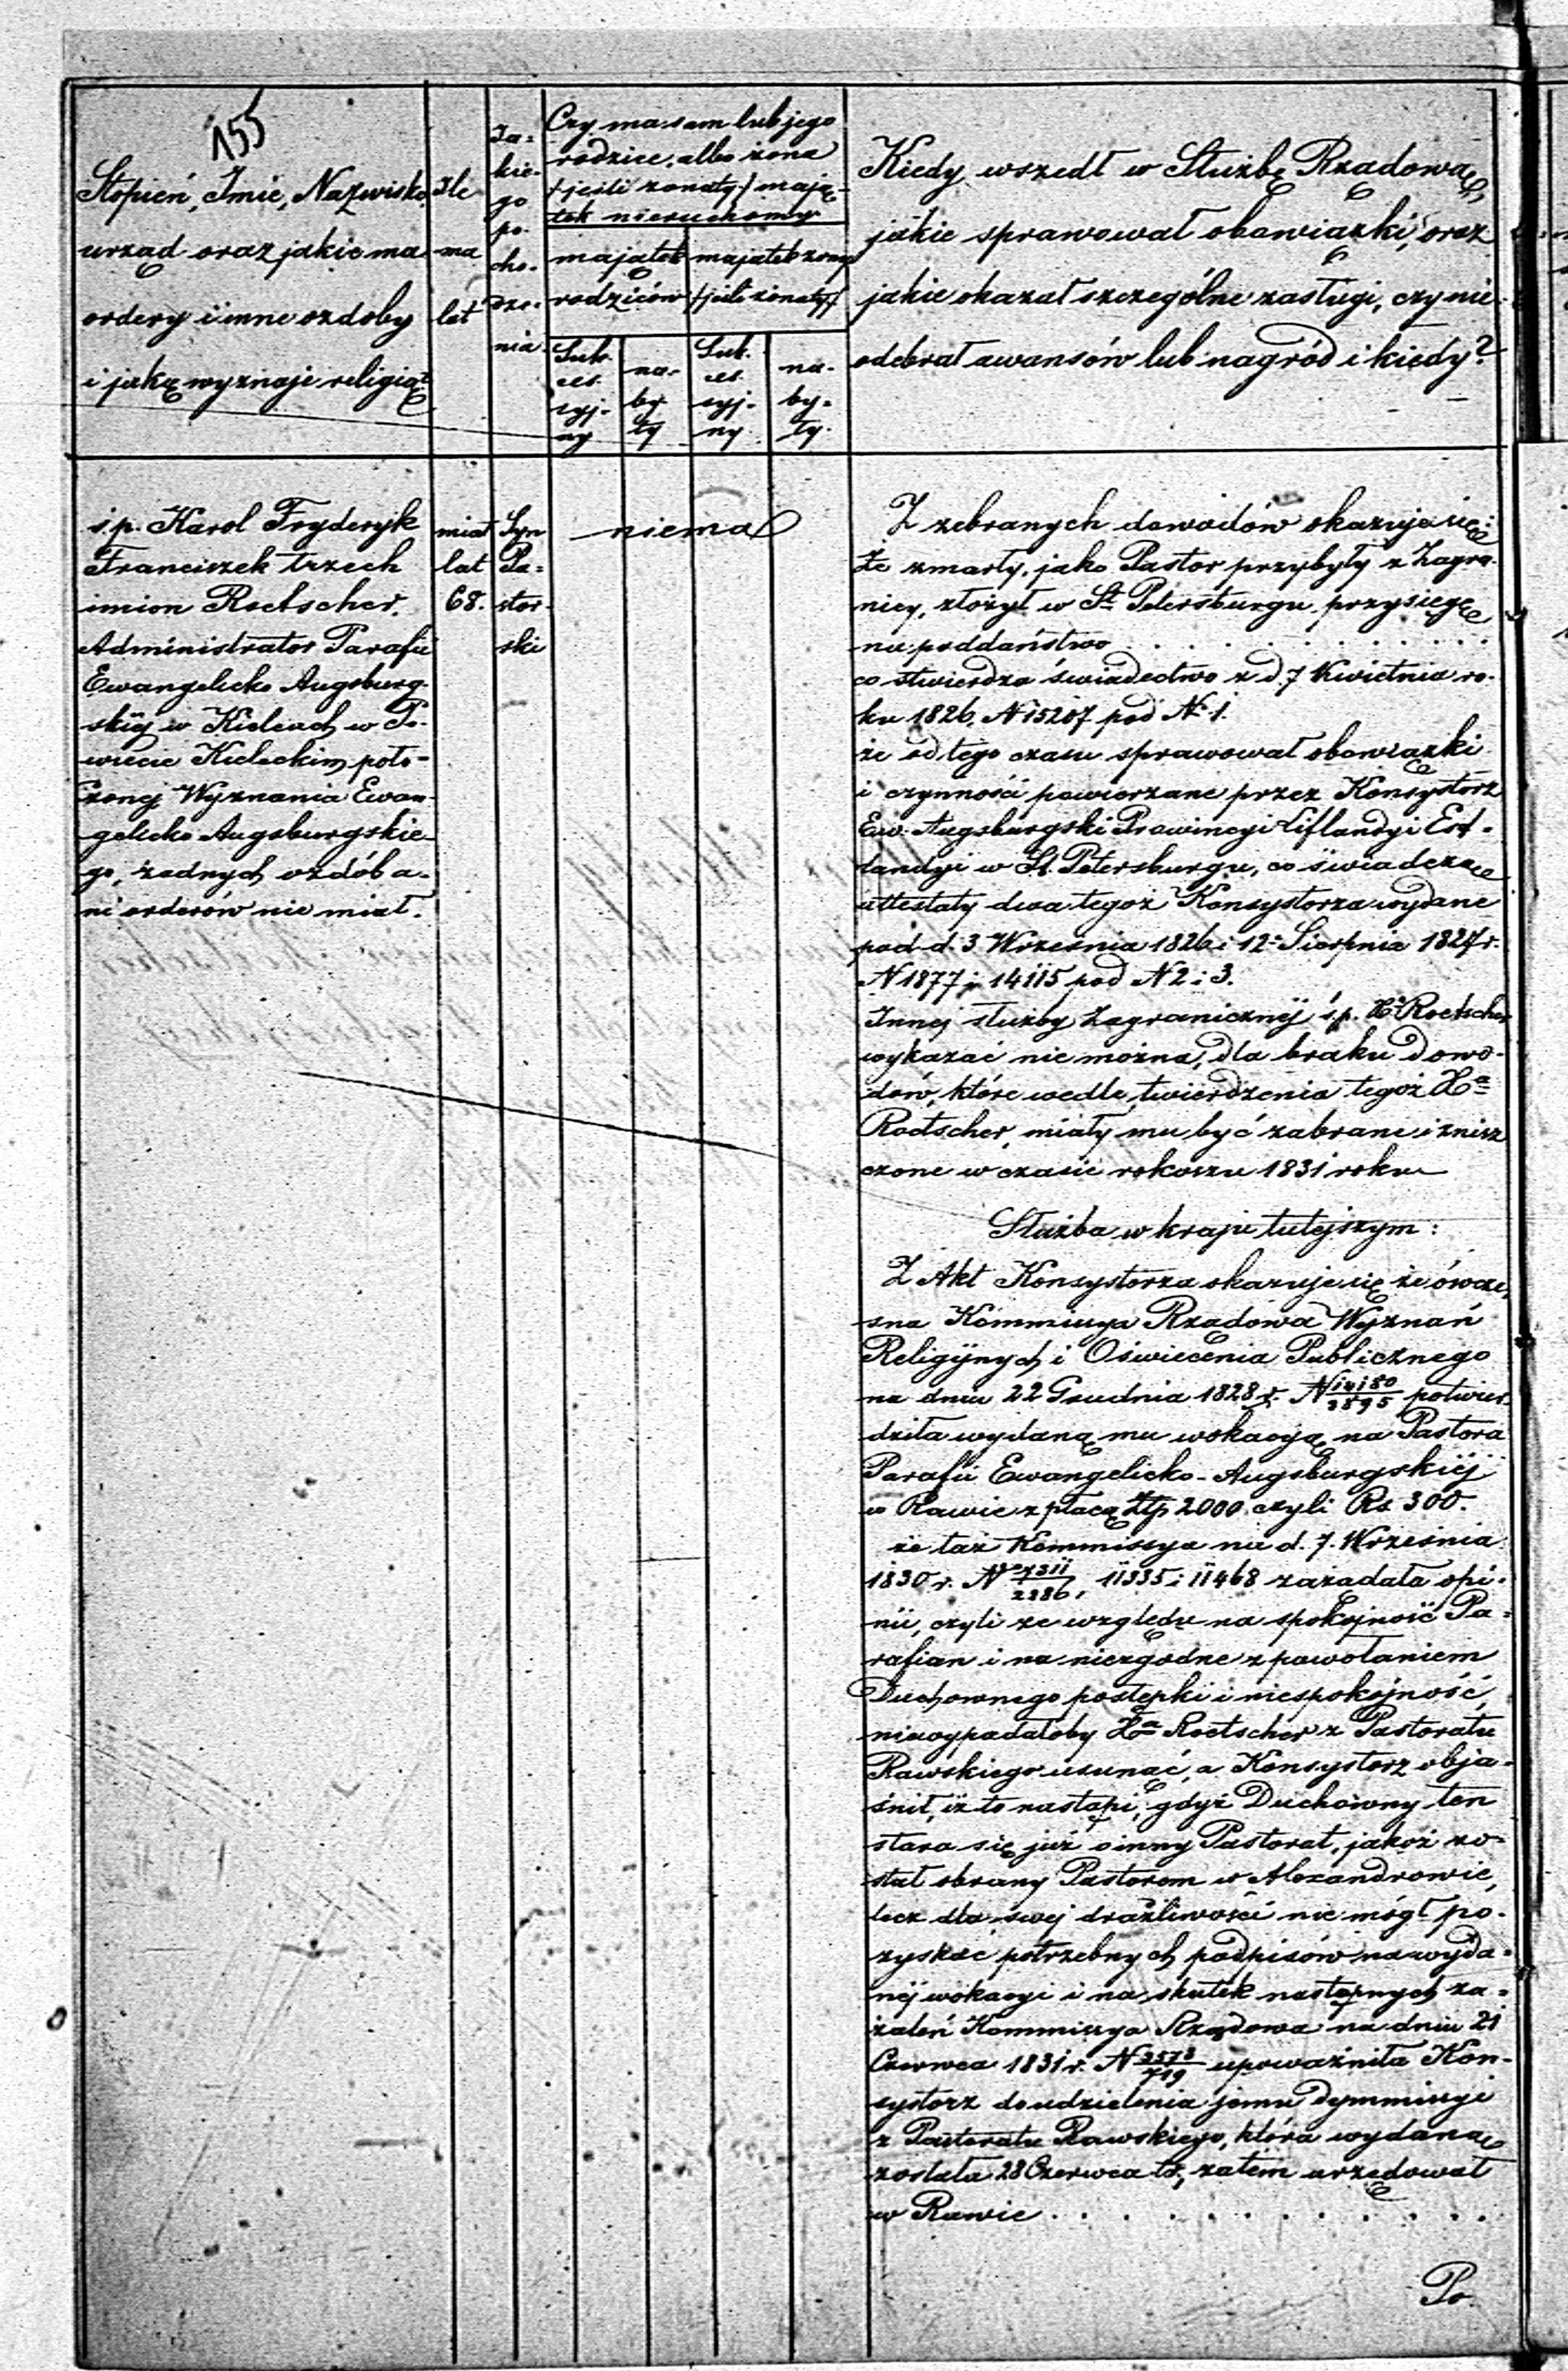 155
Stopień, Imie, Nazwisko,
urząd oraz jakie ma
ordery i inne ozdoby
i jaką wyznaje religią?
Ile
ma
lat
Ja-
kie-
go
po-
cho-
dze-
nia
Czy ma sam lub jego
rodzice, albo żona
/jeśli żonaty/ mają-
tek nieruchomy
majątek
rodziców
majątek żony
/jeśli żonaty/
Suk-
ces-
syj-
ny
na-
by-
ty
Suk-
ces-
syj-
ny
na-
by-
ty
Kiedy wszedł w Służbę Rządową,
jakie sprawował obowiązki, oraz
jakie okazał szczególne zasługi, czy nie
odebrał awansów lub nagród i kiedy?
ś.p. Karol Fryderyk
Franciszek trzech
imion Roetscher.
Administrator Parafii
Ewangelicko Augsburg-
skiej w Kielcach w Po-
wiecie Kieleckim poło-
żonej Wyznania Ewan-
gelicko Augsburgskie-
go, żadnych ozdób a-
ni orderów nie miał.
miał
lat
68.
Syn
Pa-
stor-
ski
niema
Z zebranych dowodów okazuje się:
że zmarły, jako Pastor przybyły z Zagra-
nicy, złożył w St. Petersburgu przysięgę
na poddaństwo . . . . . . . . . .
co stwierdza świadectwo z d. 7 Kwietnia ro-
ku 1826. N 15207 pod N 1.
że od tego czasu sprawował obowiązki
i czynności powierzane przez Konsystorz
Ew. Augsburgski Prowincyi Liflandyi Est-
landyi w St. Petersburgu, co świadczą
attestaty dwa tegoż Konsystorza wydane
pod d. 3 Września 1826 i 12 Sierpnia 1827 r.
N 1877 i 14115 pod N 2 i 3.
Innej służby Zagranicznej ś.p. Xa Roetscher
wykazać nie można, dla braku dowo-
dów, które wedle twierdzenia tegoż Xa
Roetscher, miały mu być zabrane i znisz
czone w czasie rokoszu 1831 roku
Służba w kraju tutejszym:
Z Akt Konsystorza okazuje się że ówcze-
sna Kommissya Rządowa Wyznań
Religijnych i Oświecenia Publicznego
na dniu 22 Grudnia 1828 r. N 14180/2895 potwier-
dziła wydaną mu wokacyą na Pastora
Parafii Ewangelicko-Augsburgskiej
w Rawie z płacą Złp 2000. czyli Rs 300.
że taż Kommissya na d. 7. Września
1830 r. N 7311/2286, 11335 i 11468 zażądała opi-
nii, czyli ze względu na spokojność Pa-
rafian i na niezgodne z powołaniem
Duchownego postępki i niespokojność,
niewypadałoby Xa Roetscher z Pastoratu
Rawskiego usunąć, a Konsystorz obja-
śnił, iż to nastąpi, gdyż Duchowny ten
stara się już o inny Pastorat, jakoż zo-
stał obrany Pastorem w Alexandrowie,
lecz dla swej drażliwości nie mógł po-
zyskać potrzebnych podpisów na wyda-
nej wokacyi i na skutek następnych za-
żaleń Kommissya Rządowa na dniu 21
Czerwca 1831 r. N 2578/719 upoważniła Kon-
systorz do udzielenia jemu dymmissyi
z Pastoratu Rawskiego, która wydaną
została 28 Czerwca tr, zatem urzędował
w Rawie . . . . . . . . . . . .
Po